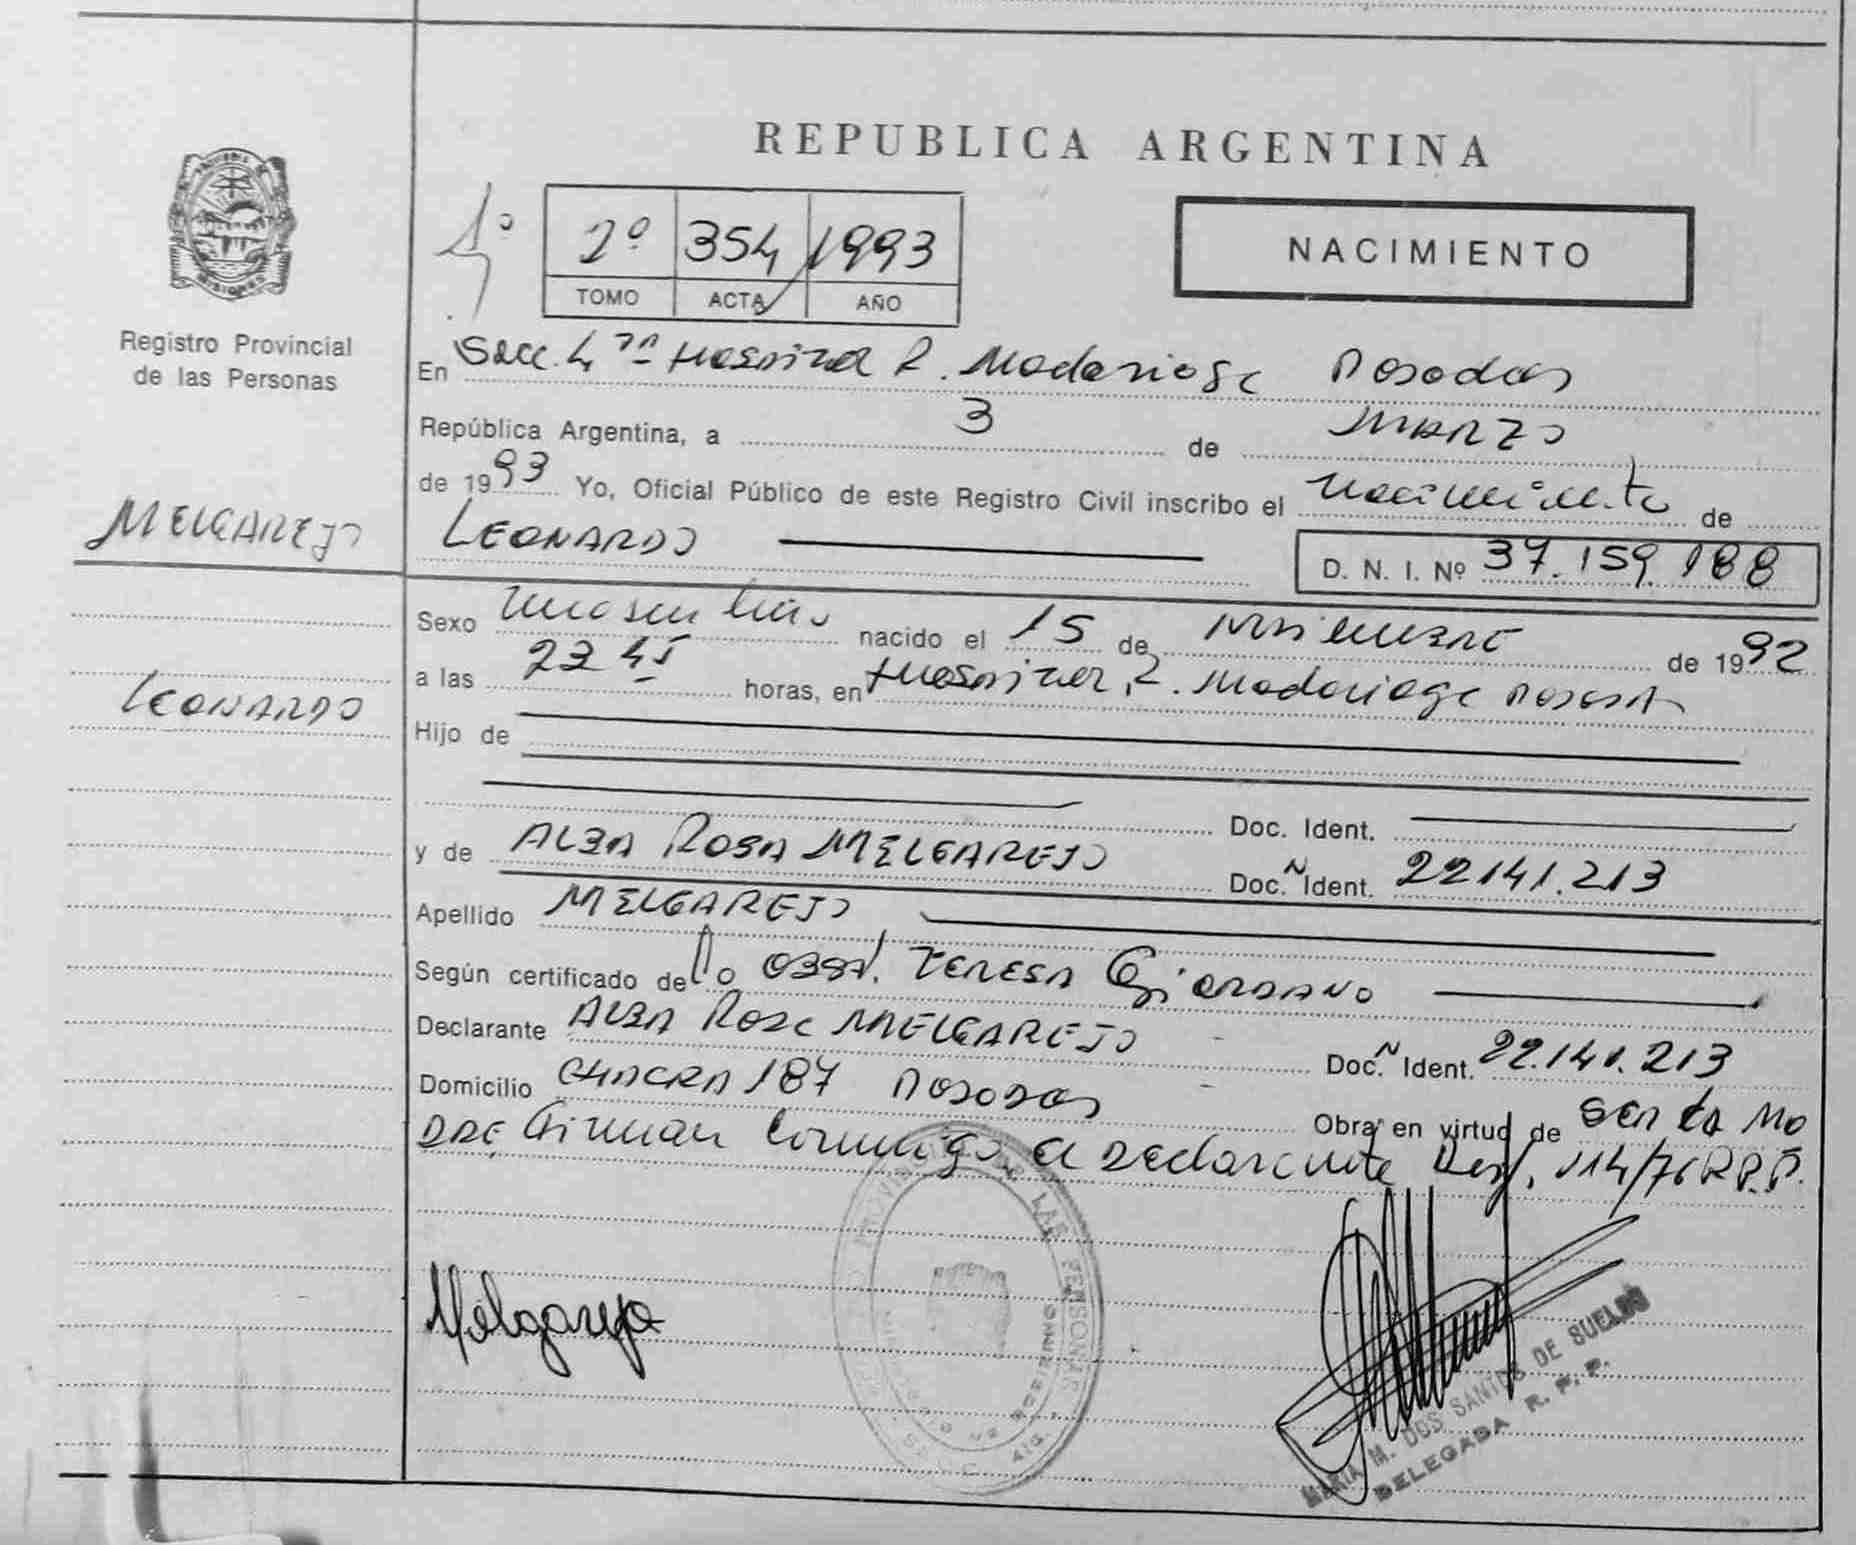 REPUBLICA ARGENTINA
NACIMIENTO
2º 354 1993
TOMO ACTA AÑO
MISIONES
Registro Provincial
de las Personas
En Secc. 4 Hospital R. Madariaga Posadas
República Argentina, a 3 de MARZO
de 1993 Yo, Oficial Público de este Registro Civil inscribo el nacimiento de
MELGAREJO
LEONARDO
D. N. I. Nº 37.159.188
Sexo masculino nacido el 15 de de 1992
a las 23 45 horas, en Hospital R. Madariaga Posadas
LEONARDO
Hijo de
Doc. Ident.
y de ALBA ROSA MELGAREJO Doc. Ident. 22141.213
Apellido MELGAREJO
Según certificado de la OBST. TERESA GIORDANO
Declarante ALBA ROSA MELGAREJO Doc. Ident. 22.141.213
Domicilio CHACRA 187 POSADAS
Obra en virtud de ser la MA
DRE Firman conmigo el Declarante 114/76 R.P.P.
Melgarejo
PROVINCIAL DE LAS PERSONAS
MISIONES
MARIA M. DOS SANTOS DE SUELDO
DELEGADA R. P. P.